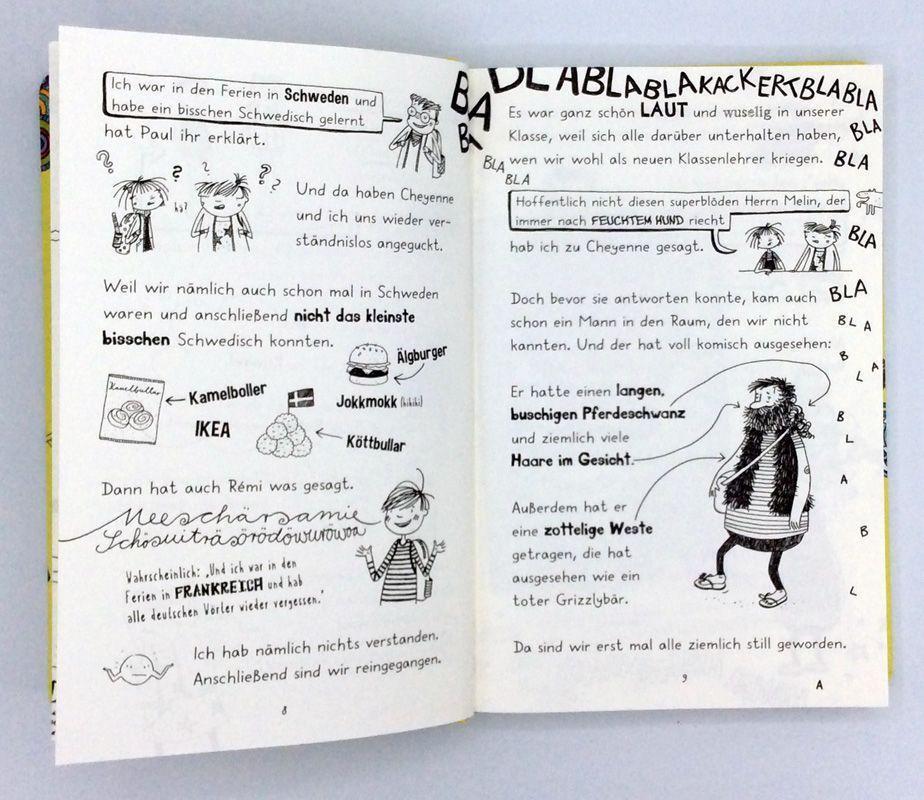 Ich war in den Ferien in Schweden und
habe ein bisschen Schwedisch gelernt
hat Paul ihr erklärt.
? ? ? ? ?
hä?
Und da haben Cheyenne
und ich uns wieder ver-
ständnislos angeguckt.
Weil wir nämlich auch schon mal in Schweden
waren und anschließend nicht das kleinste
bisschen Schwedisch konnten.
Älgburger
Kamelbullar
Kamelboller
Jokkmokk (hihihi)
IKEA
Köttbullar
Dann hat auch Rémi was gesagt.
Meeschärsamie
Schösuiträsörödöwuröwoa
Wahrscheinlich: „Und ich war in den
Ferien in FRANKREICH und hab
alle deutschen Vörter wieder vergessen."
Ich hab nämlich nichts verstanden.
Anschließend sind wir reingegangen.
8
BLA
BLABLABLABLAKACKERTBLABLA
Es war ganz schön LAUT und wuselig in unserer
Klasse, weil sich alle darüber unterhalten haben,
wen wir wohl als neuen Klassenlehrer kriegen.
BLA
BLA
BLA
BLA
Hoffentlich nicht diesen superblöden Herrn Melin, der
immer nach FEUCHTEM HUND riecht
hab ich zu Cheyenne gesagt.
BLA
Doch bevor sie antworten konnte, kam auch
schon ein Mann in den Raum, den wir nicht
kannten. Und der hat voll komisch ausgesehen:
BLA
BLA
B
L
A
Er hatte einen langen,
buschigen Pferdeschwanz
und ziemlich viele
Haare im Gesicht.
B
L
A
Außerdem hat er
eine zottelige Weste
getragen, die hat
ausgesehen wie ein
toter Grizzlybär.
B
L
Da sind wir erst mal alle ziemlich still geworden.
9
A